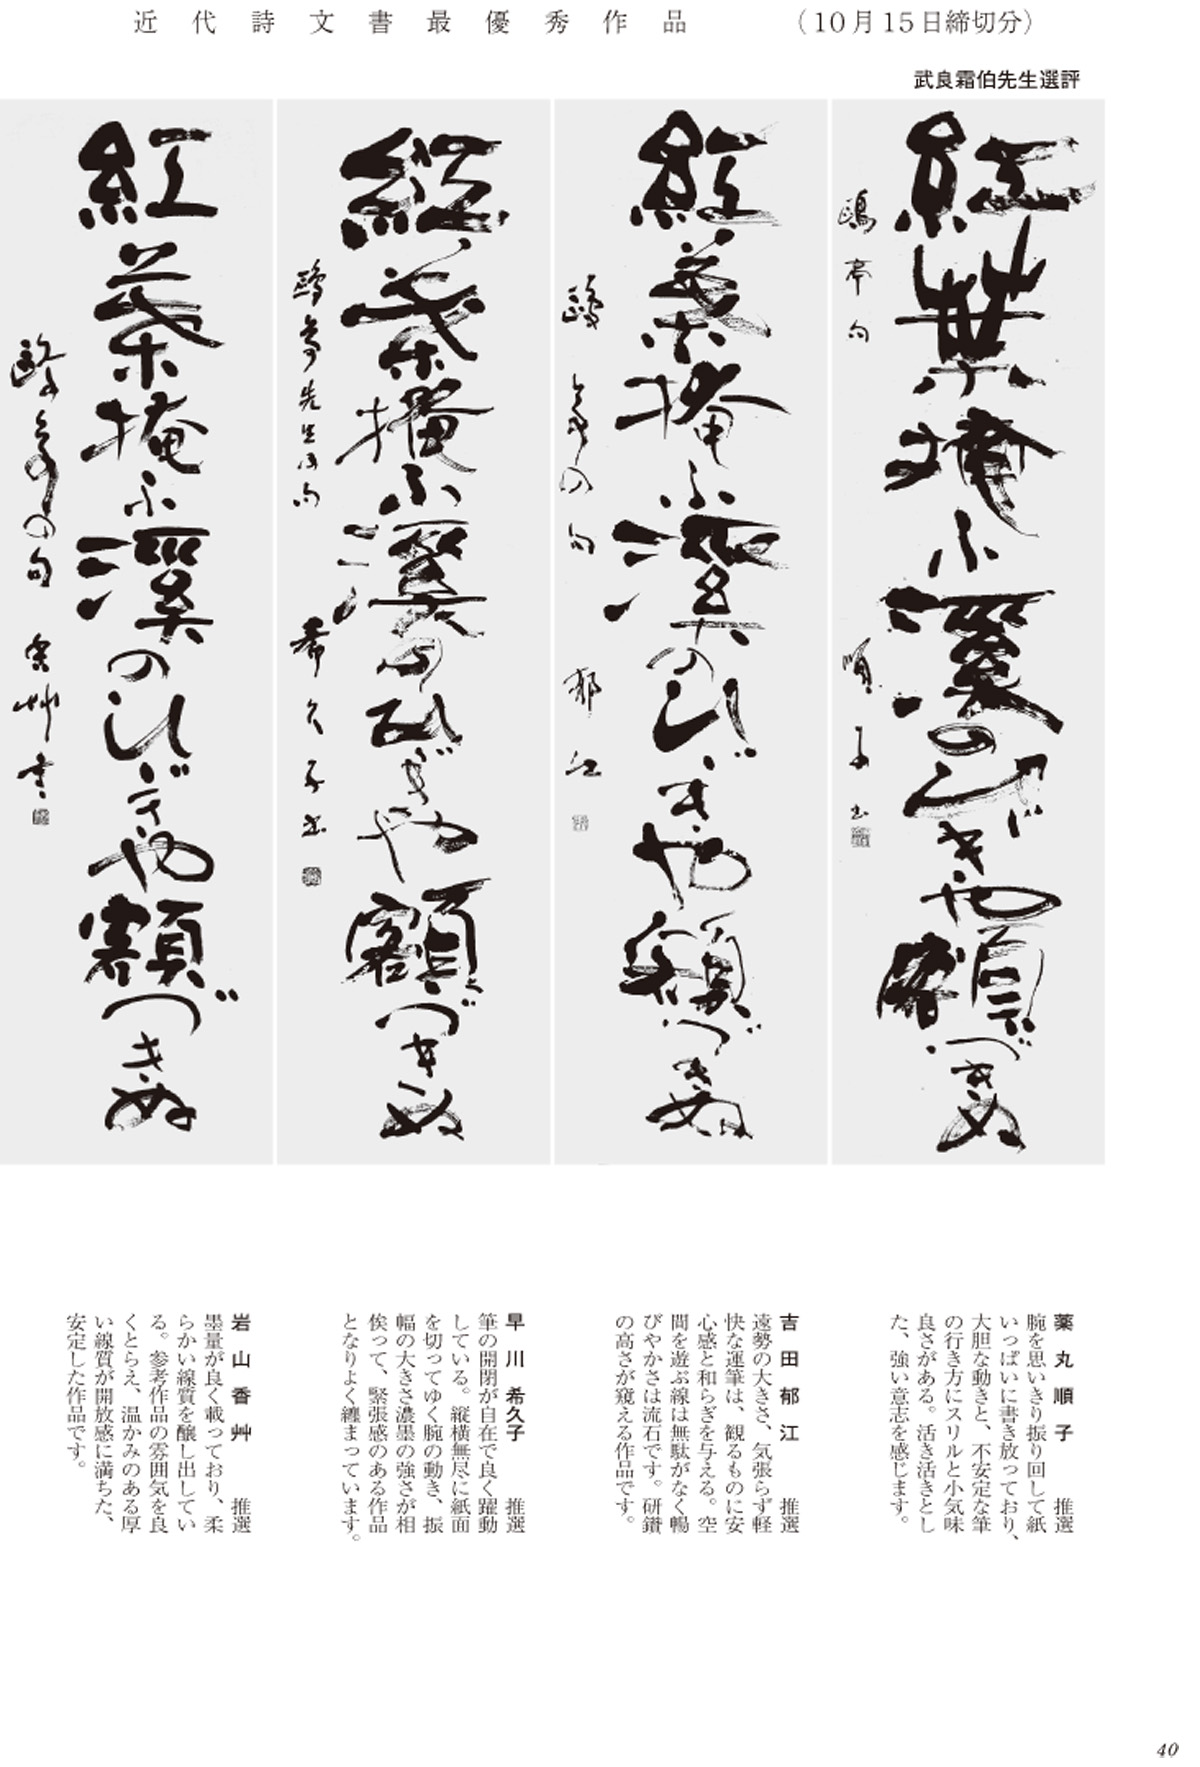 近代詩文書最優秀作品 (10月15日締切分)
武良霜伯先生選評
紅葉掩ふ溪のひゞきや額づきぬ
鴎亭句
順子書
紅葉掩ふ溪のひゞきや額づきぬ
鴎亭の句
郁江
紅葉掩ふ溪のひゞきや額づきぬ
鴎亭先生の句
希久子書
紅葉掩ふ溪のひゞきや額づきぬ
鴎亭の句
香艸書
薬丸順子 推選
腕を思いきり振り回して紙
いっぱいに書き放っており、
大胆な動きと、不安定な筆
の行き方にスリルと小気味
良さがある。活き活きとし
た、強い意志を感じます。
吉田郁江 推選
遠勢の大きさ、気張らず軽
快な運筆は、観るものに安
心感と和らぎを与える。空
間を遊ぶ線は無駄がなく暢
びやかさは流石です。研鑽
の高さが窺える作品です。
早川希久子 推選
筆の開閉が自在で良く躍動
している。縦横無尽に紙面
を切ってゆく腕の動き、振
幅の大きさ濃墨の強さが相
俟って、緊張感のある作品
となりよく纏まっています。
岩山香艸 推選
墨量が良く載っており、柔
らかい線質を醸し出してい
る。参考作品の雰囲気を良
くとらえ、温かみのある厚
い線質が開放感に満ちた、
安定した作品です。
40